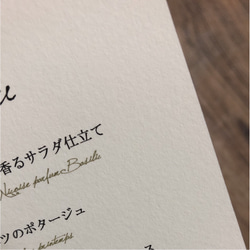 u
香るサラダ仕立て
Niçoise parfum Basilic
ツのポタージュ
printemps